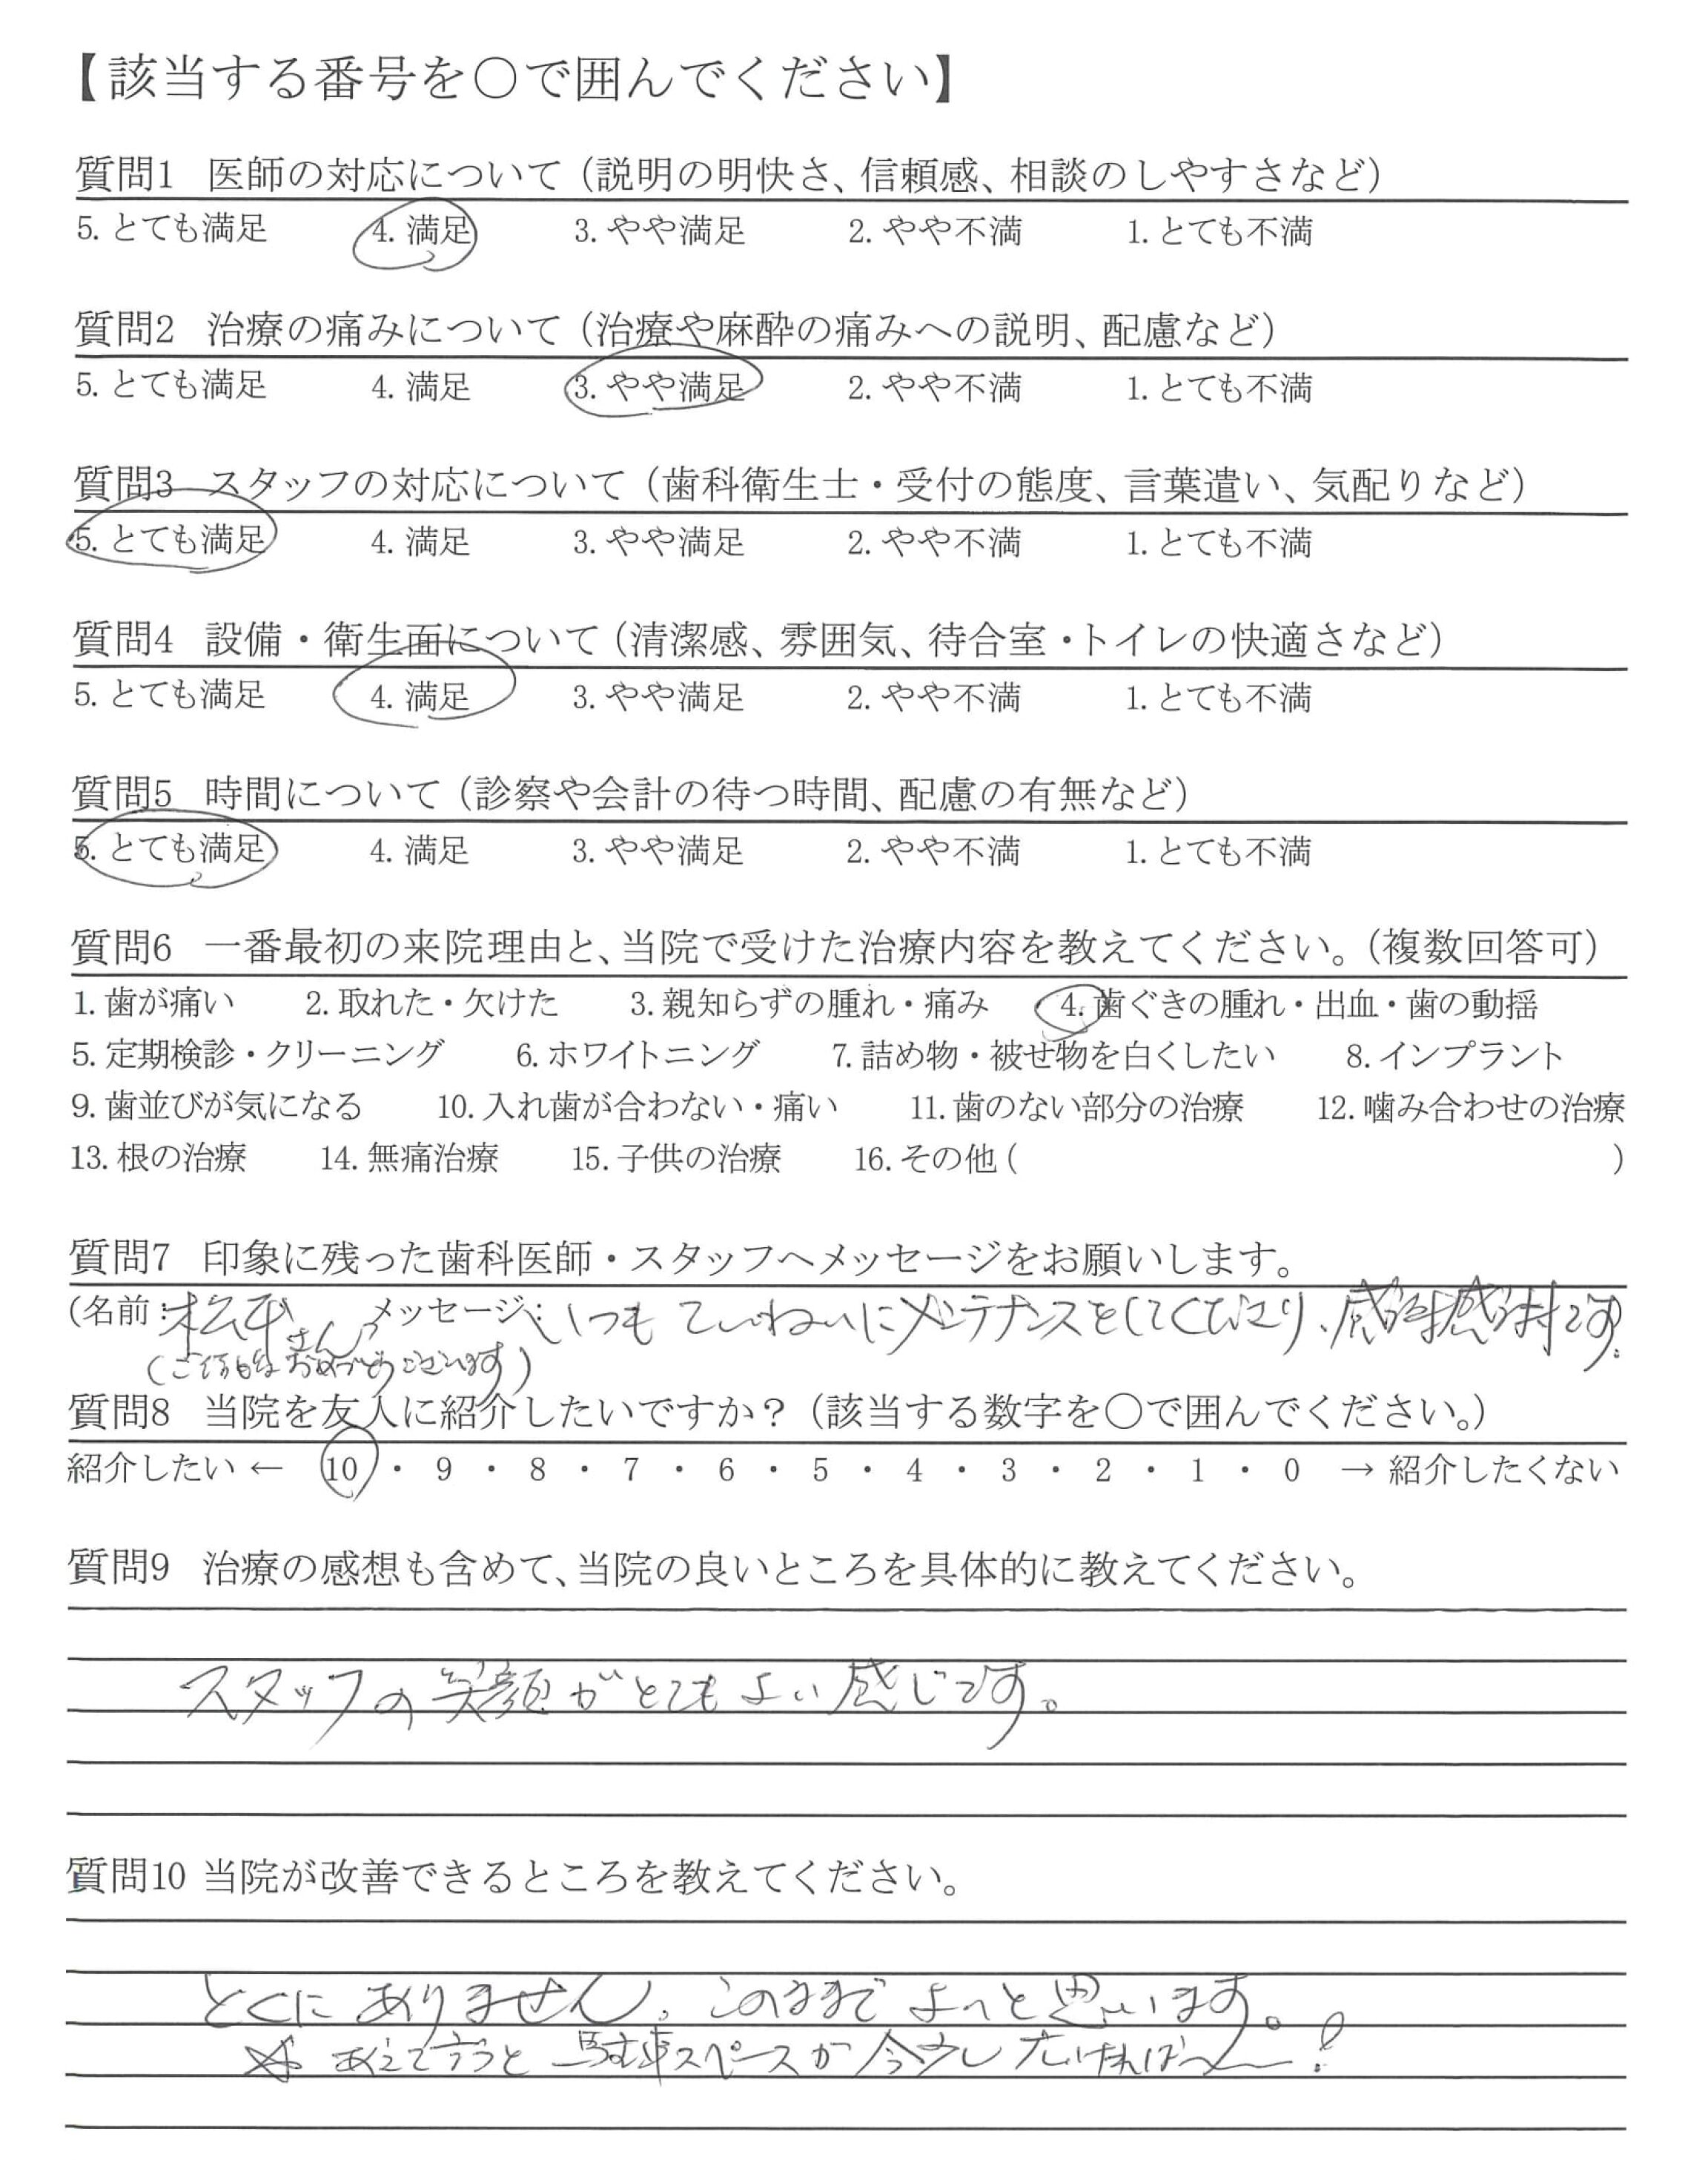 【該当する番号を○で囲んでください】
質問1 医師の対応について（説明の明快さ、信頼感、相談のしやすさなど）
5. とても満足 4. 満足 3. やや満足 2. やや不満 1. とても不満
質問2 治療の痛みについて（治療や麻酔の痛みへの説明、配慮など）
5. とても満足 4. 満足 3. やや満足 2. やや不満 1. とても不満
質問3 スタッフの対応について（歯科衛生士・受付の態度、言葉遣い、気配りなど）
5. とても満足 4. 満足 3. やや満足 2. やや不満 1. とても不満
質問4 設備・衛生面について（清潔感、雰囲気、待合室・トイレの快適さなど）
5. とても満足 4. 満足 3. やや満足 2. やや不満 1. とても不満
質問5 時間について（診察や会計の待つ時間、配慮の有無など）
5. とても満足 4. 満足 3. やや満足 2. やや不満 1. とても不満
質問6 一番最初の来院理由と、当院で受けた治療内容を教えてください。（複数回答可）
1. 歯が痛い 2. 取れた・欠けた 3. 親知らずの腫れ・痛み 4. 歯ぐきの腫れ・出血・歯の動揺
5. 定期検診・クリーニング 6. ホワイトニング 7. 詰め物・被せ物を白くしたい 8. インプラント
9. 歯並びが気になる 10. 入れ歯が合わない・痛い 11. 歯のない部分の治療 12. 噛み合わせの治療
13. 根の治療 14. 無痛治療 15. 子供の治療 16. その他 ( )
質問7 印象に残った歯科医師・スタッフへメッセージをお願いします。
(名前：松平さん メッセージ：いつもていねいにメンテナンスをしてくださり、感謝感謝です。
(ご結婚おめでとうございます)
質問8 当院を友人に紹介したいですか？（該当する数字を○で囲んでください。）
紹介したい ← 10 ・ 9 ・ 8 ・ 7 ・ 6 ・ 5 ・ 4 ・ 3 ・ 2 ・ 1 ・ 0 → 紹介したくない
質問9 治療の感想も含めて、当院の良いところを具体的に教えてください。
スタッフの笑顔がとてもよい感じです。
質問10 当院が改善できるところを教えてください。
とくにありません。このままでよいと思います。
☆ あえて言うと 駐車スペースが今少し広ければ〜！